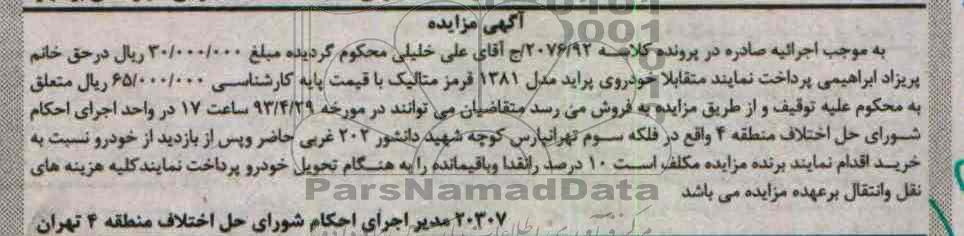 آگهی مزایده
به موجب اجرائیه صادره در پرونده کلاسه ۲۰۷۶/۹۲/ج آقای علی خلیلی محکوم گردیده مبلغ ۳۰/۰۰۰/۰۰۰ ریال درحق خانم
پریزاد ابراهیمی پرداخت نمایند متقابلا خودروی پراید مدل ۱۳۸۱ قرمز متالیک با قیمت پایه کارشناسی ۶۵/۰۰۰/۰۰۰ ریال متعلق
به محکوم علیه توقیف و از طریق مزایده به فروش می رسد متقاضیان می توانند در مورخه ۹۳/۴/۲۹ ساعت ۱۷ در واحد اجرای احکام
شورای حل اختلاف منطقه ۴ واقع در فلکه سوم تهرانپارس کوچه شهید دانشور ۲۰۲ غربی حاضر وپس از بازدید از خودرو نسبت به
خرید اقدام نمایند برنده مزایده مکلف است ۱۰ درصد رانقدا وباقیمانده را به هنگام تحویل خودرو پرداخت نمایند کلیه هزینه های
نقل وانتقال برعهده مزایده می باشد
ParsNamadData
۲۰۳۰۷ مدیر اجرای احکام شورای حل اختلاف منطقه ۴ تهران